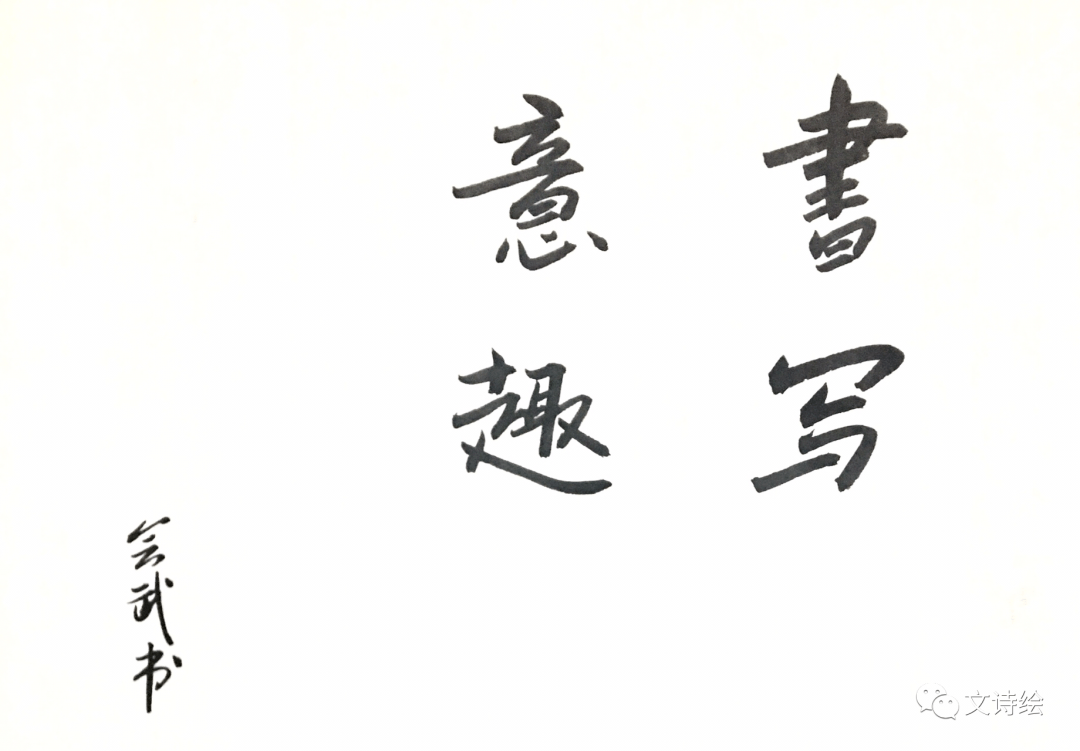 書写
意趣
会武书
文诗绘